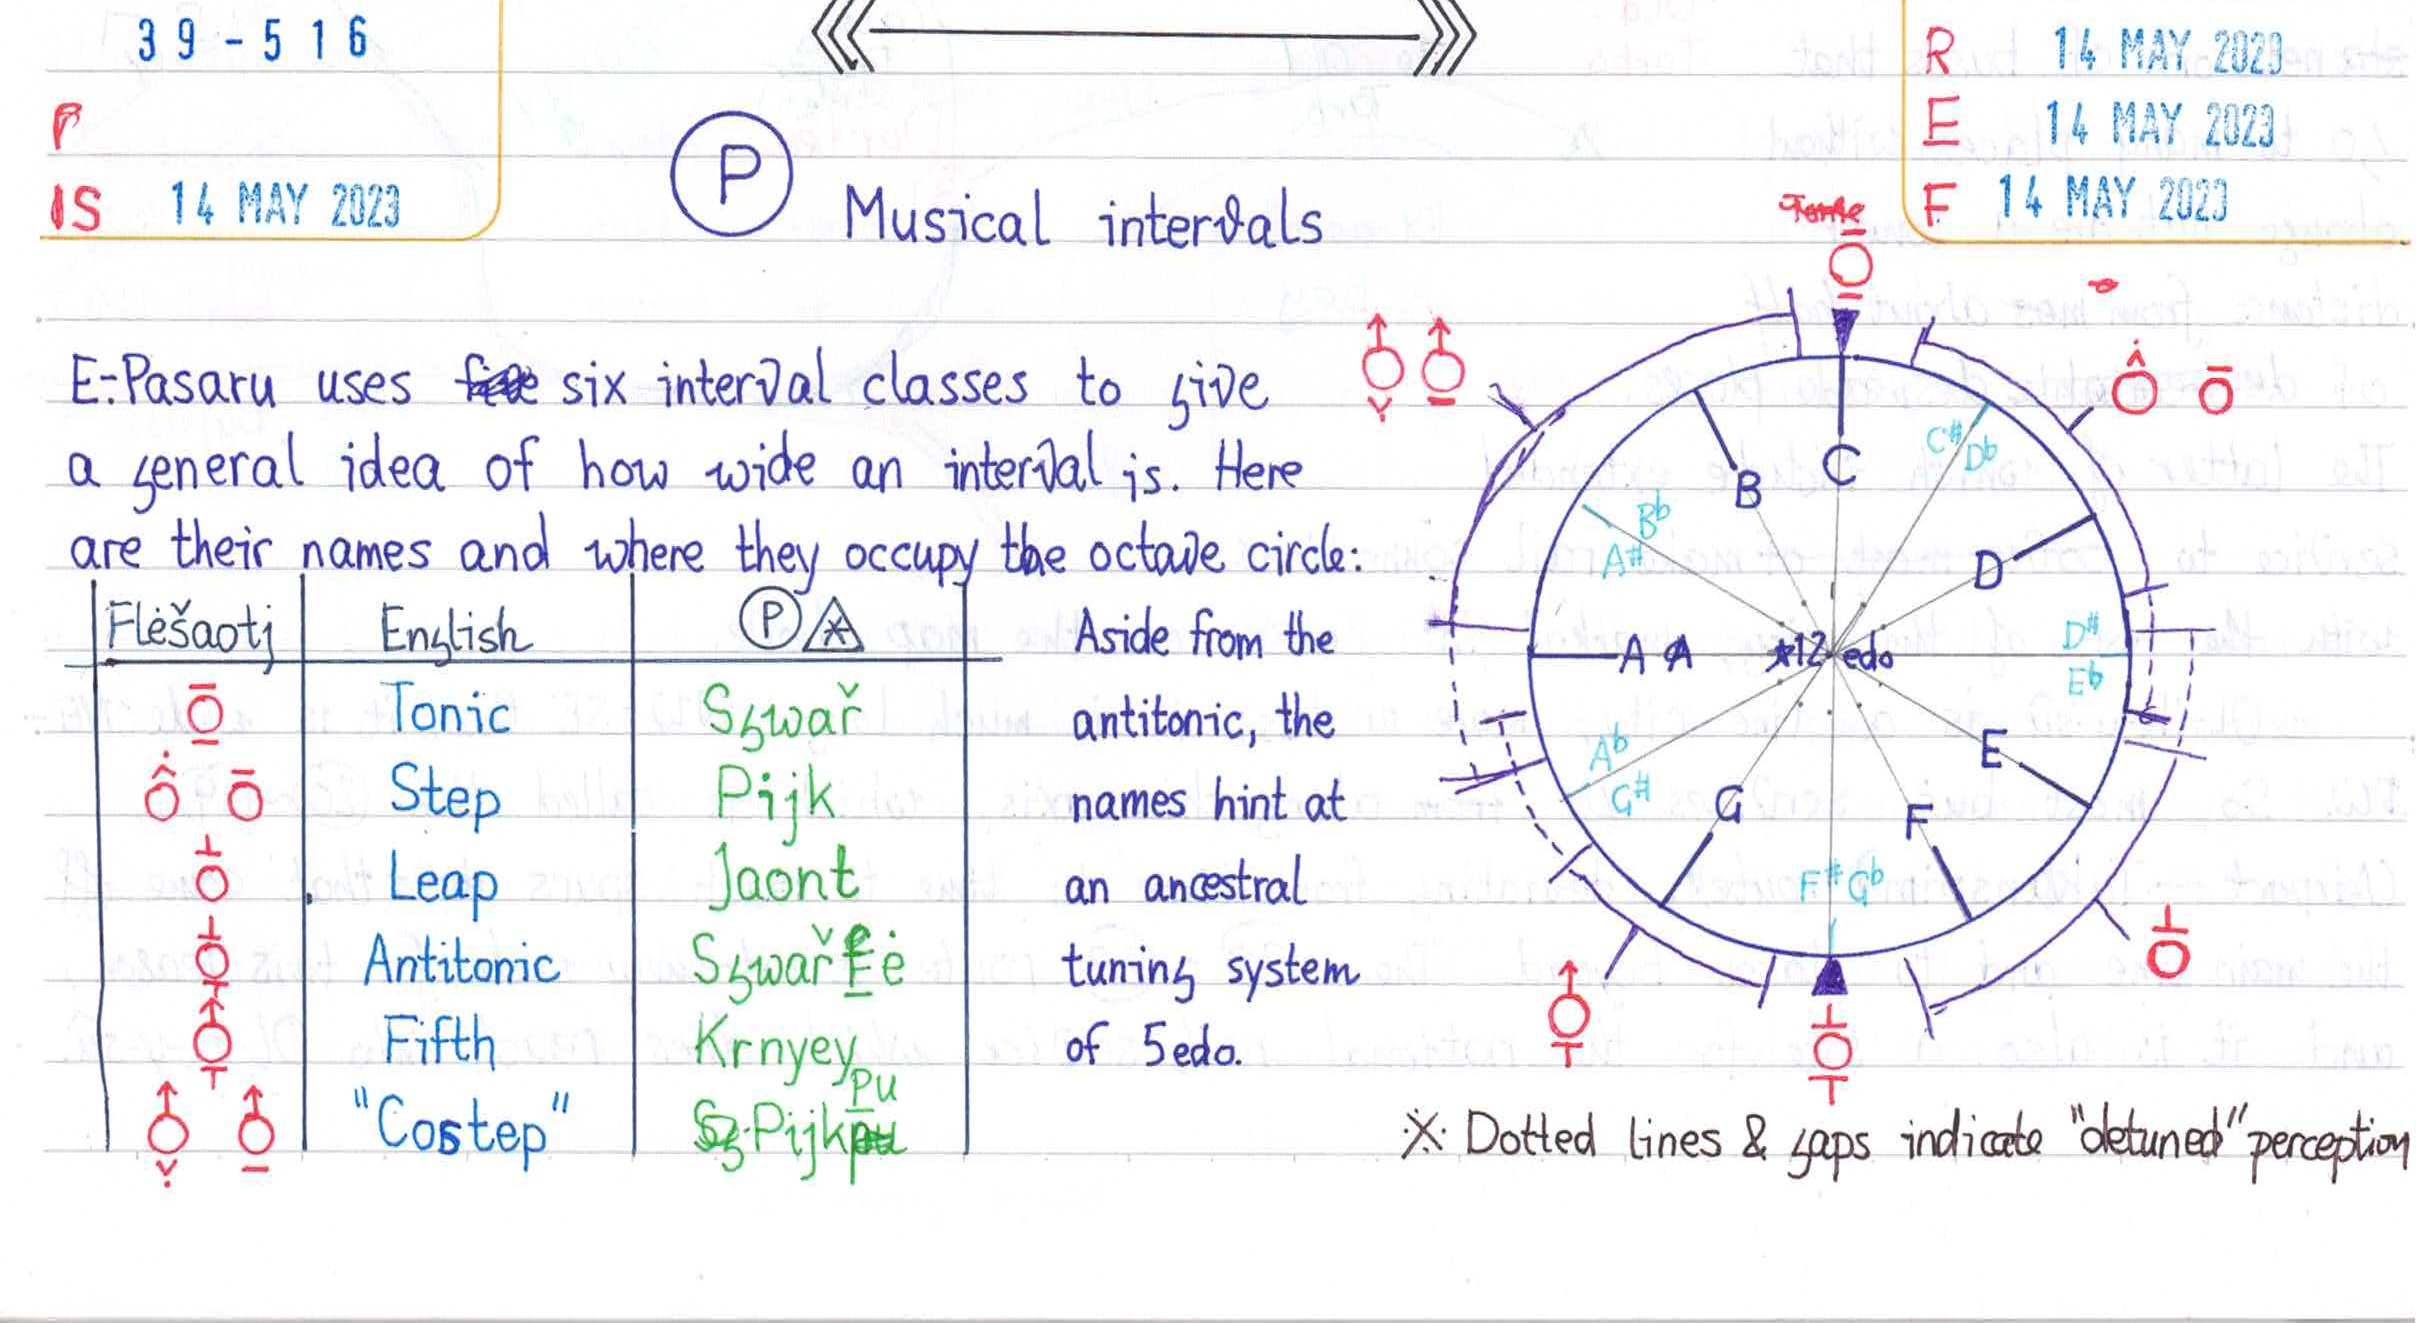 39-516
P
IS 14 MAY 2023
R 14 MAY 2023
E 14 MAY 2023
F 14 MAY 2023
P Musical intervals
E:Pasaru uses six interval classes to give
a general idea of how wide an interval is. Here
are their names and where they occupy the octave circle:
Flėšaotj English P
Tonic Sȝwař
Step Pijk
Leap Jaont
Antitonic
Fifth Krnyey
"Costep" Pijkpu
Aside from the
antitonic, the
names hint at
an ancestral
tuning system
of 5edo.
Tonic
C
C# Db
D
D#
Eb
E
F
F# Gb
G
Ab
G#
A A
Bb
A#
B
12 edo
※ Dotted lines & gaps indicate "detuned" perception